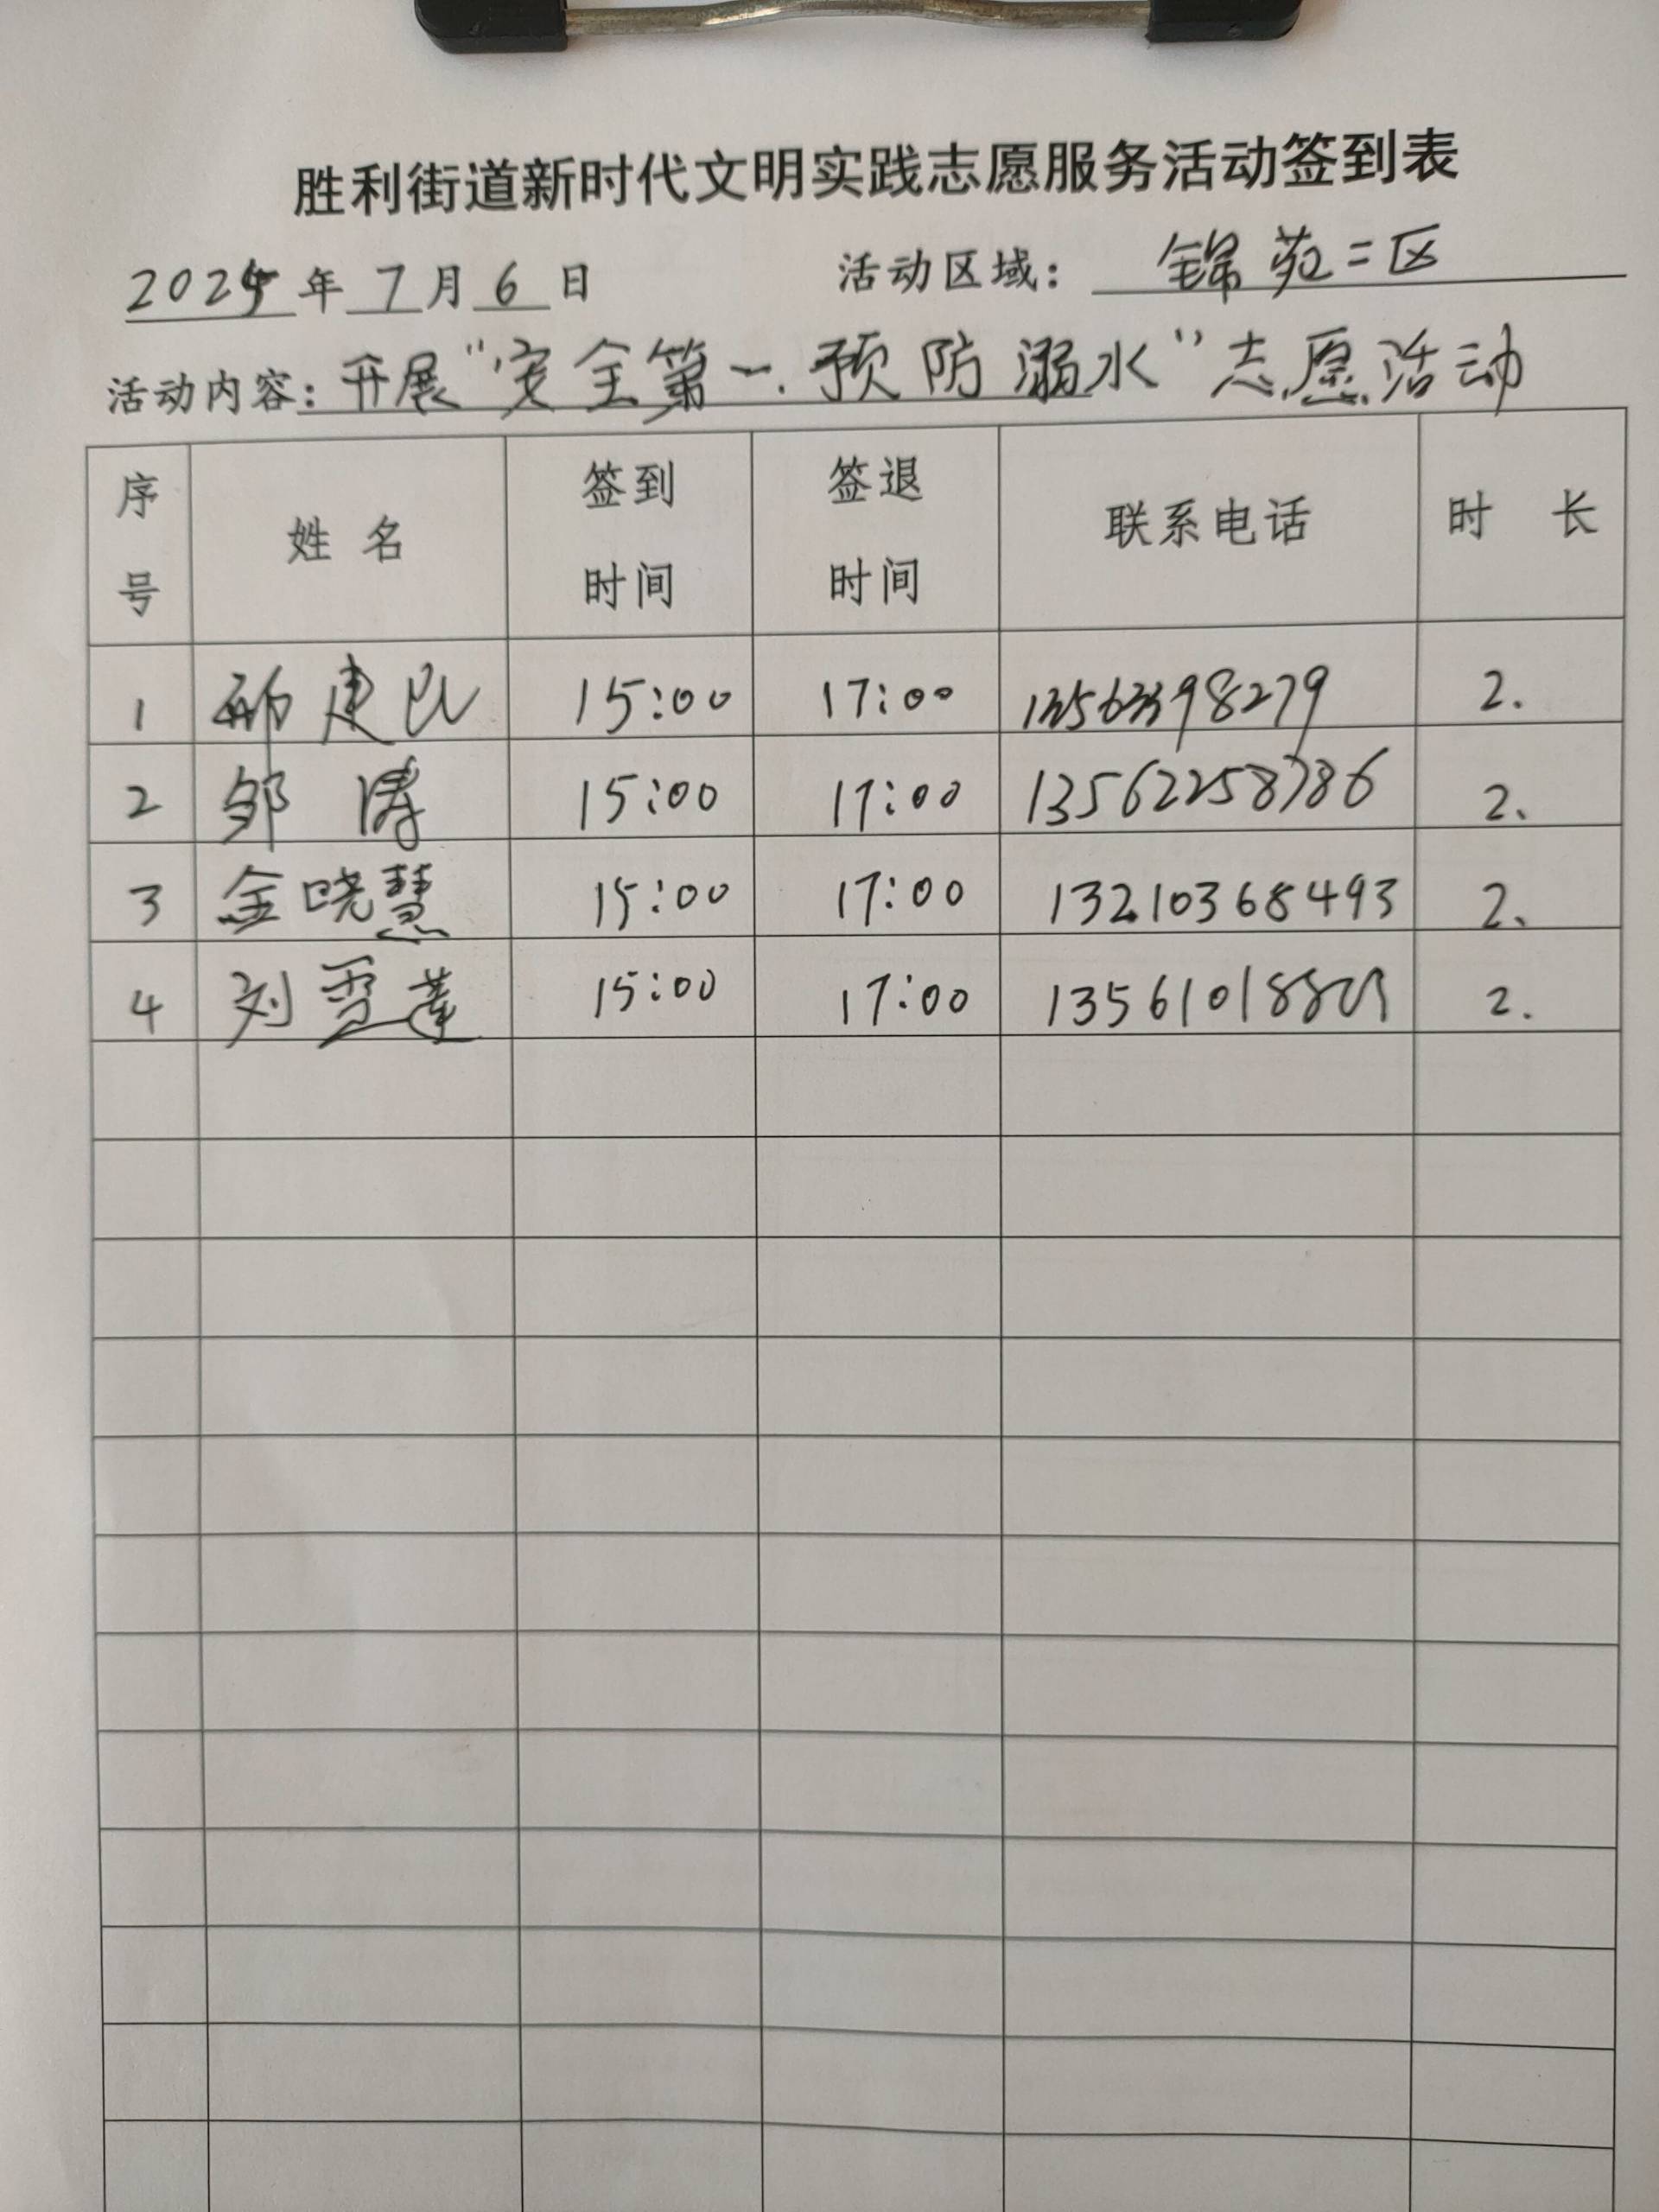 胜利街道新时代文明实践志愿服务活动签到表
2024年7月6日 活动区域：锦苑二区
活动内容：开展“安全第一.预防溺水”志愿活动
序号 姓名 签到时间 签退时间 联系电话 时长
1 建民 15:00 17:00 2.
2 邹涛 15:00 17:00 13562258786 2、
3 金晓慧 15:00 17:00 13210368493 2、
4 刘雪莲 15:00 17:00 2.